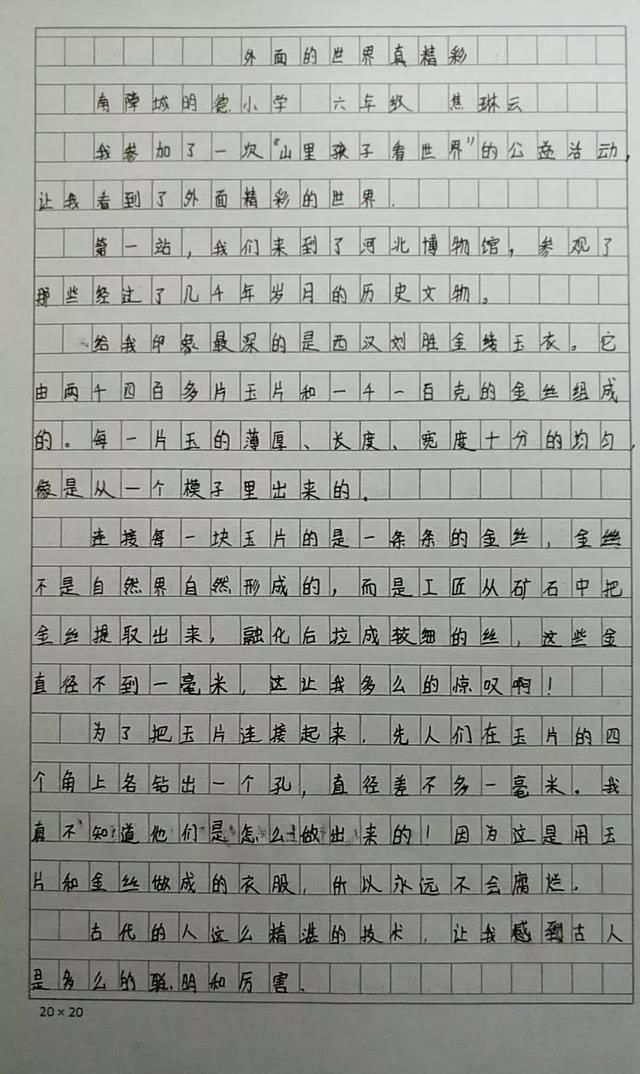 外面的世界真精彩
南陈城明德小学 六年级 焦琳云
我参加了一次“山里孩子看世界”的公益活动,
让我看到了外面精彩的世界.
第一站,我们来到了河北博物馆,参观了
那些经过了几千年岁月的历史文物。
给我印象最深的是西汉刘胜金缕玉衣。它
由两千四百多片玉片和一千一百克的金丝组成
的。每一片玉的薄厚、长度、宽度十分的均匀,
像是从一个模子里出来的.
连接每一块玉片的是一条条的金丝,金丝
不是自然界自然形成的,而是工匠从矿石中把
金丝提取出来,融化后拉成较细的丝,这些金
直径不到一毫米,这让我多么的惊叹啊!
为了把玉片连接起来.先人们在玉片的四
个角上各钻出一个孔,直径差不多一毫米。我
真不知道他们是怎么做出来的!因为这是用玉
片和金丝做成的衣服,所以永远不会腐烂.
古代的人这么精湛的技术,让我感到古人
是多么的聪明和厉害.
20×20